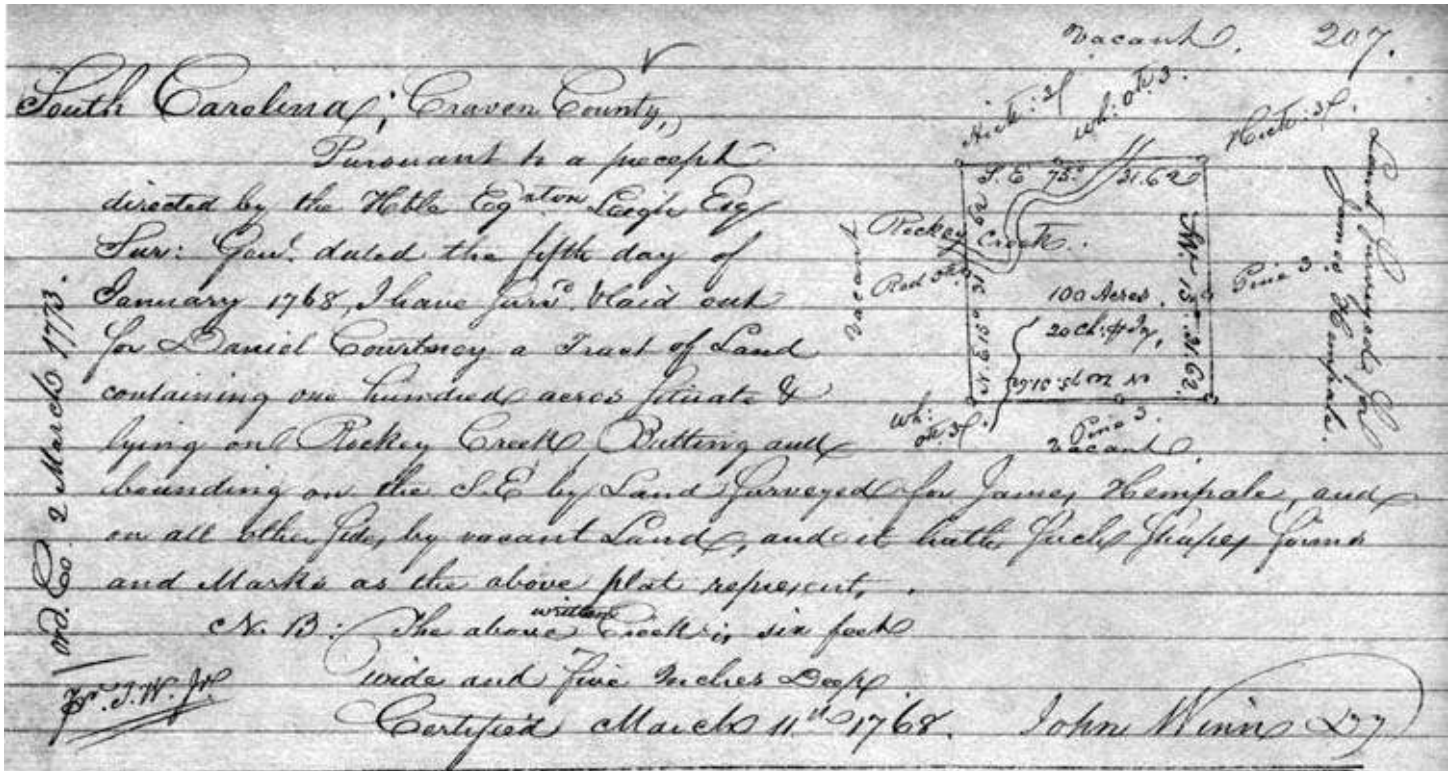 Vacant. 207.
South Carolina; Craven County,
Pursuant to a precept
directed by the Hble Egerton Leigh Esq
Sur: Genl. dated the fifth day of
January 1768, I have Survd. & laid out
for Daniel Courtney a Tract of Land
containing one hundred acres Situate &
lying on Rockey Creek, Butting and
bounding on the S.E by Land Surveyed for James Hemphale, and
on all other Sides by vacant Land, and it hath Such Shape, forms
and Marks as the above plat represent,
N. B: The above written Creek is six feet
wide and five Inches Deep
Certified March 11th 1768. John Winn DS
ord. C. 2 March 1773.
Hick: 3/
wh: Ok 3.
Hick: 3/.
S. E 75° 31.62
Vacant
Rockey Creek.
Red Ok 3
N. E 15° 31.62
100 Acres.
20 Ch: # In,
15° 31.62.
Pine 3
Land Surveyed for
James Hemphale.
N W 75. 31.62
wh:
Ok. 3/.
Pine 3.
Vacant.